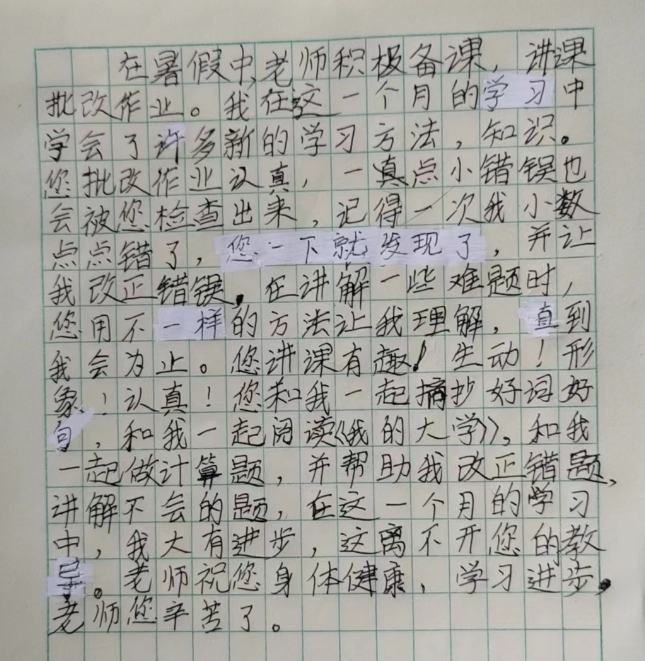 在暑假中,老师积极备课，讲课
批改作业。我在这一个月的学习中
学会了许多新的学习方法，知识。
您批改作业认真，一真点小错误也
会被您检查出来，记得一次我小数
点点错了，您一下就发现了，并让
我改正错误。在讲解一些难题时，
您用不一样的方法让我理解，直到
我会为止。您讲课有趣！生动！形
象！认真！您和我一起摘抄好词好
句，和我一起阅读《我的大学》，和我
一起做计算题，并帮助我改正错题、
讲解不会的题，在这一个月的学习
中，我大有进步，这离不开您的教
导。老师祝您身体健康，学习进步，
老师您辛苦了。